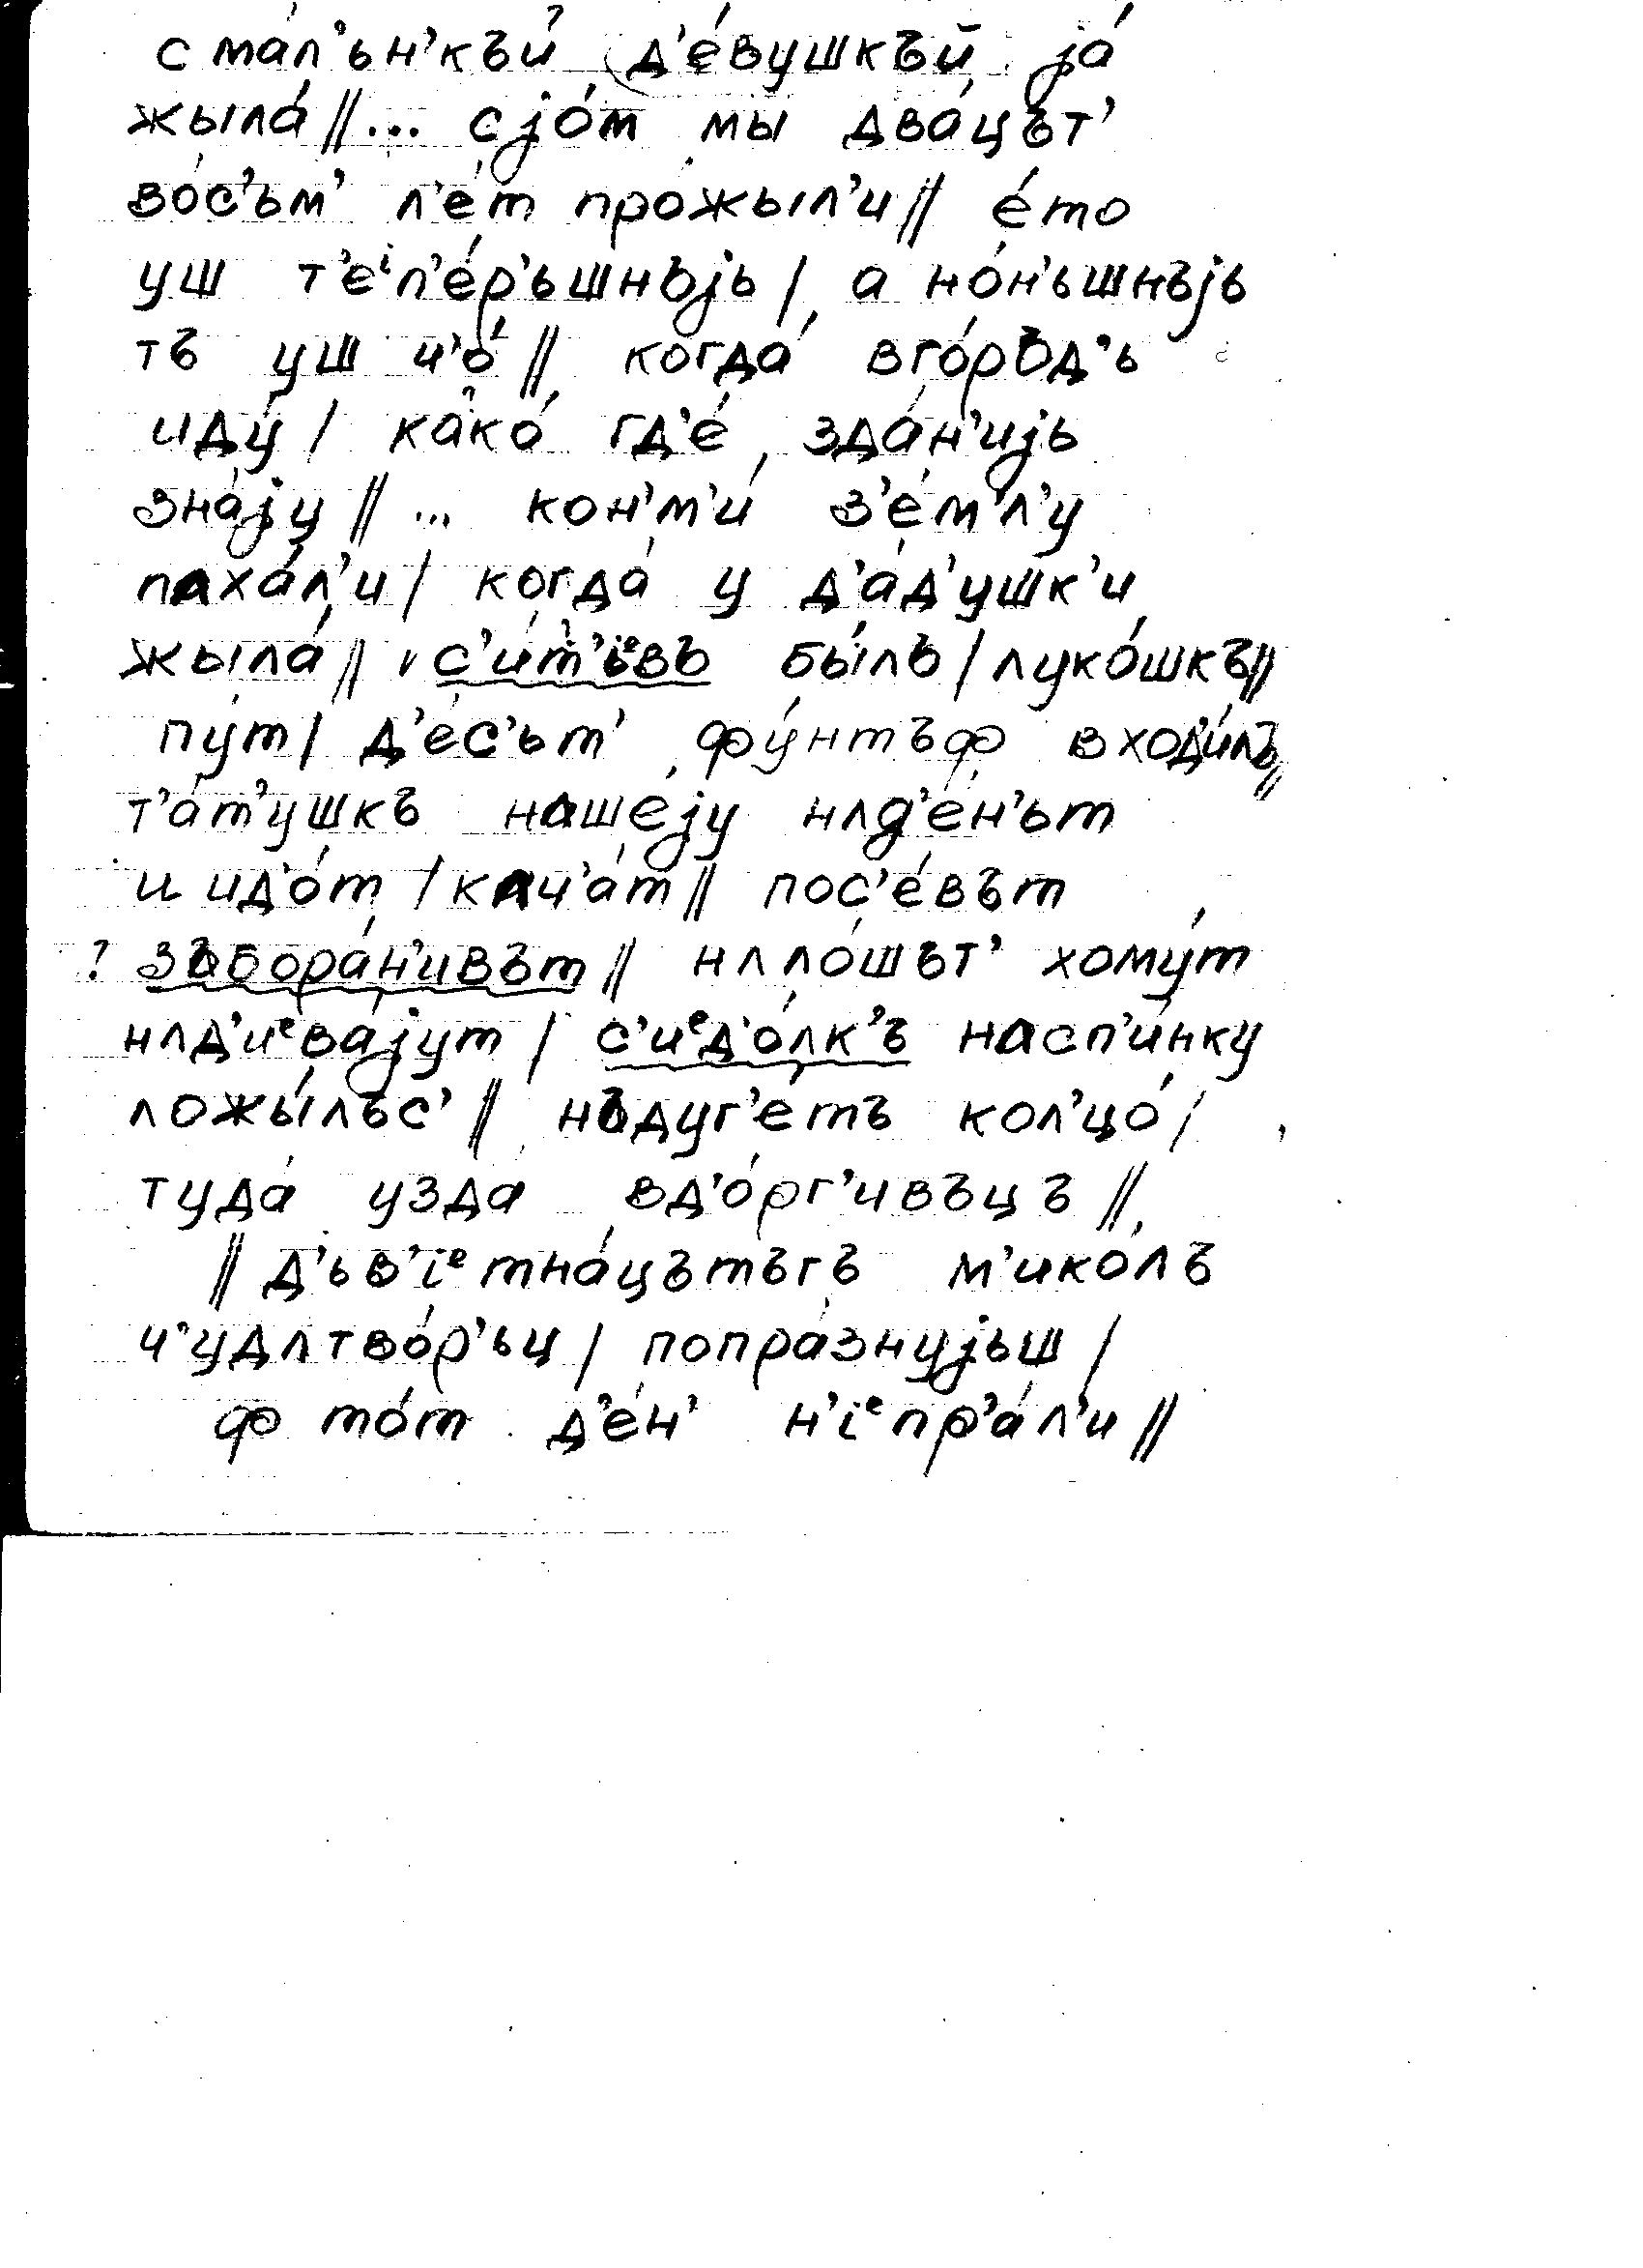 с ма́л'ьн'къй д'е́вушкъй jа́
жыла́ // ... с jо́м мы два́цът'
во́с'ьм' л'е́т про́жыл'и // е́то
уш т'еⁱп'е́р'ьшнъjь / а но́н'ьшнъjь
тъ уш ч'о́ // когда́ вго́ръд'ь
иду́ / како́ гд'е́ зда́н'иjь
зна́jу // ... кон'м'и́ з'е́мл'у
паха́л'и / когда́ у д'а́д'ушк'и
жыла́ // с'и́т'iᵉвъ бы́лъ / луко́шкъ //
пу́т / д'е́с'ьт' фу́нтъф входи́лъ //
т'а́т'ушкъ нашеjу нлд'е́н'ьт
и ид'о́т / кача́т // пос'е́вът
? зъбора́н'ивът // нлло́шът' хому́т
нлд'иᵉва́jут / с'иᵉд'о́лк'ъ насп'и́нку
ложы́лъс' // нъдуг'е́тъ кол'цо́ /
туда́ узда́ вд'о́рг'ивъцъ //
// д'ьв'iᵉтна́цътъгъ м'ико́лъ
ч'удлтво́р'ьц / попра́знуjьш /
ф то́т д'е́н' н'iᵉпр'а́л'и //